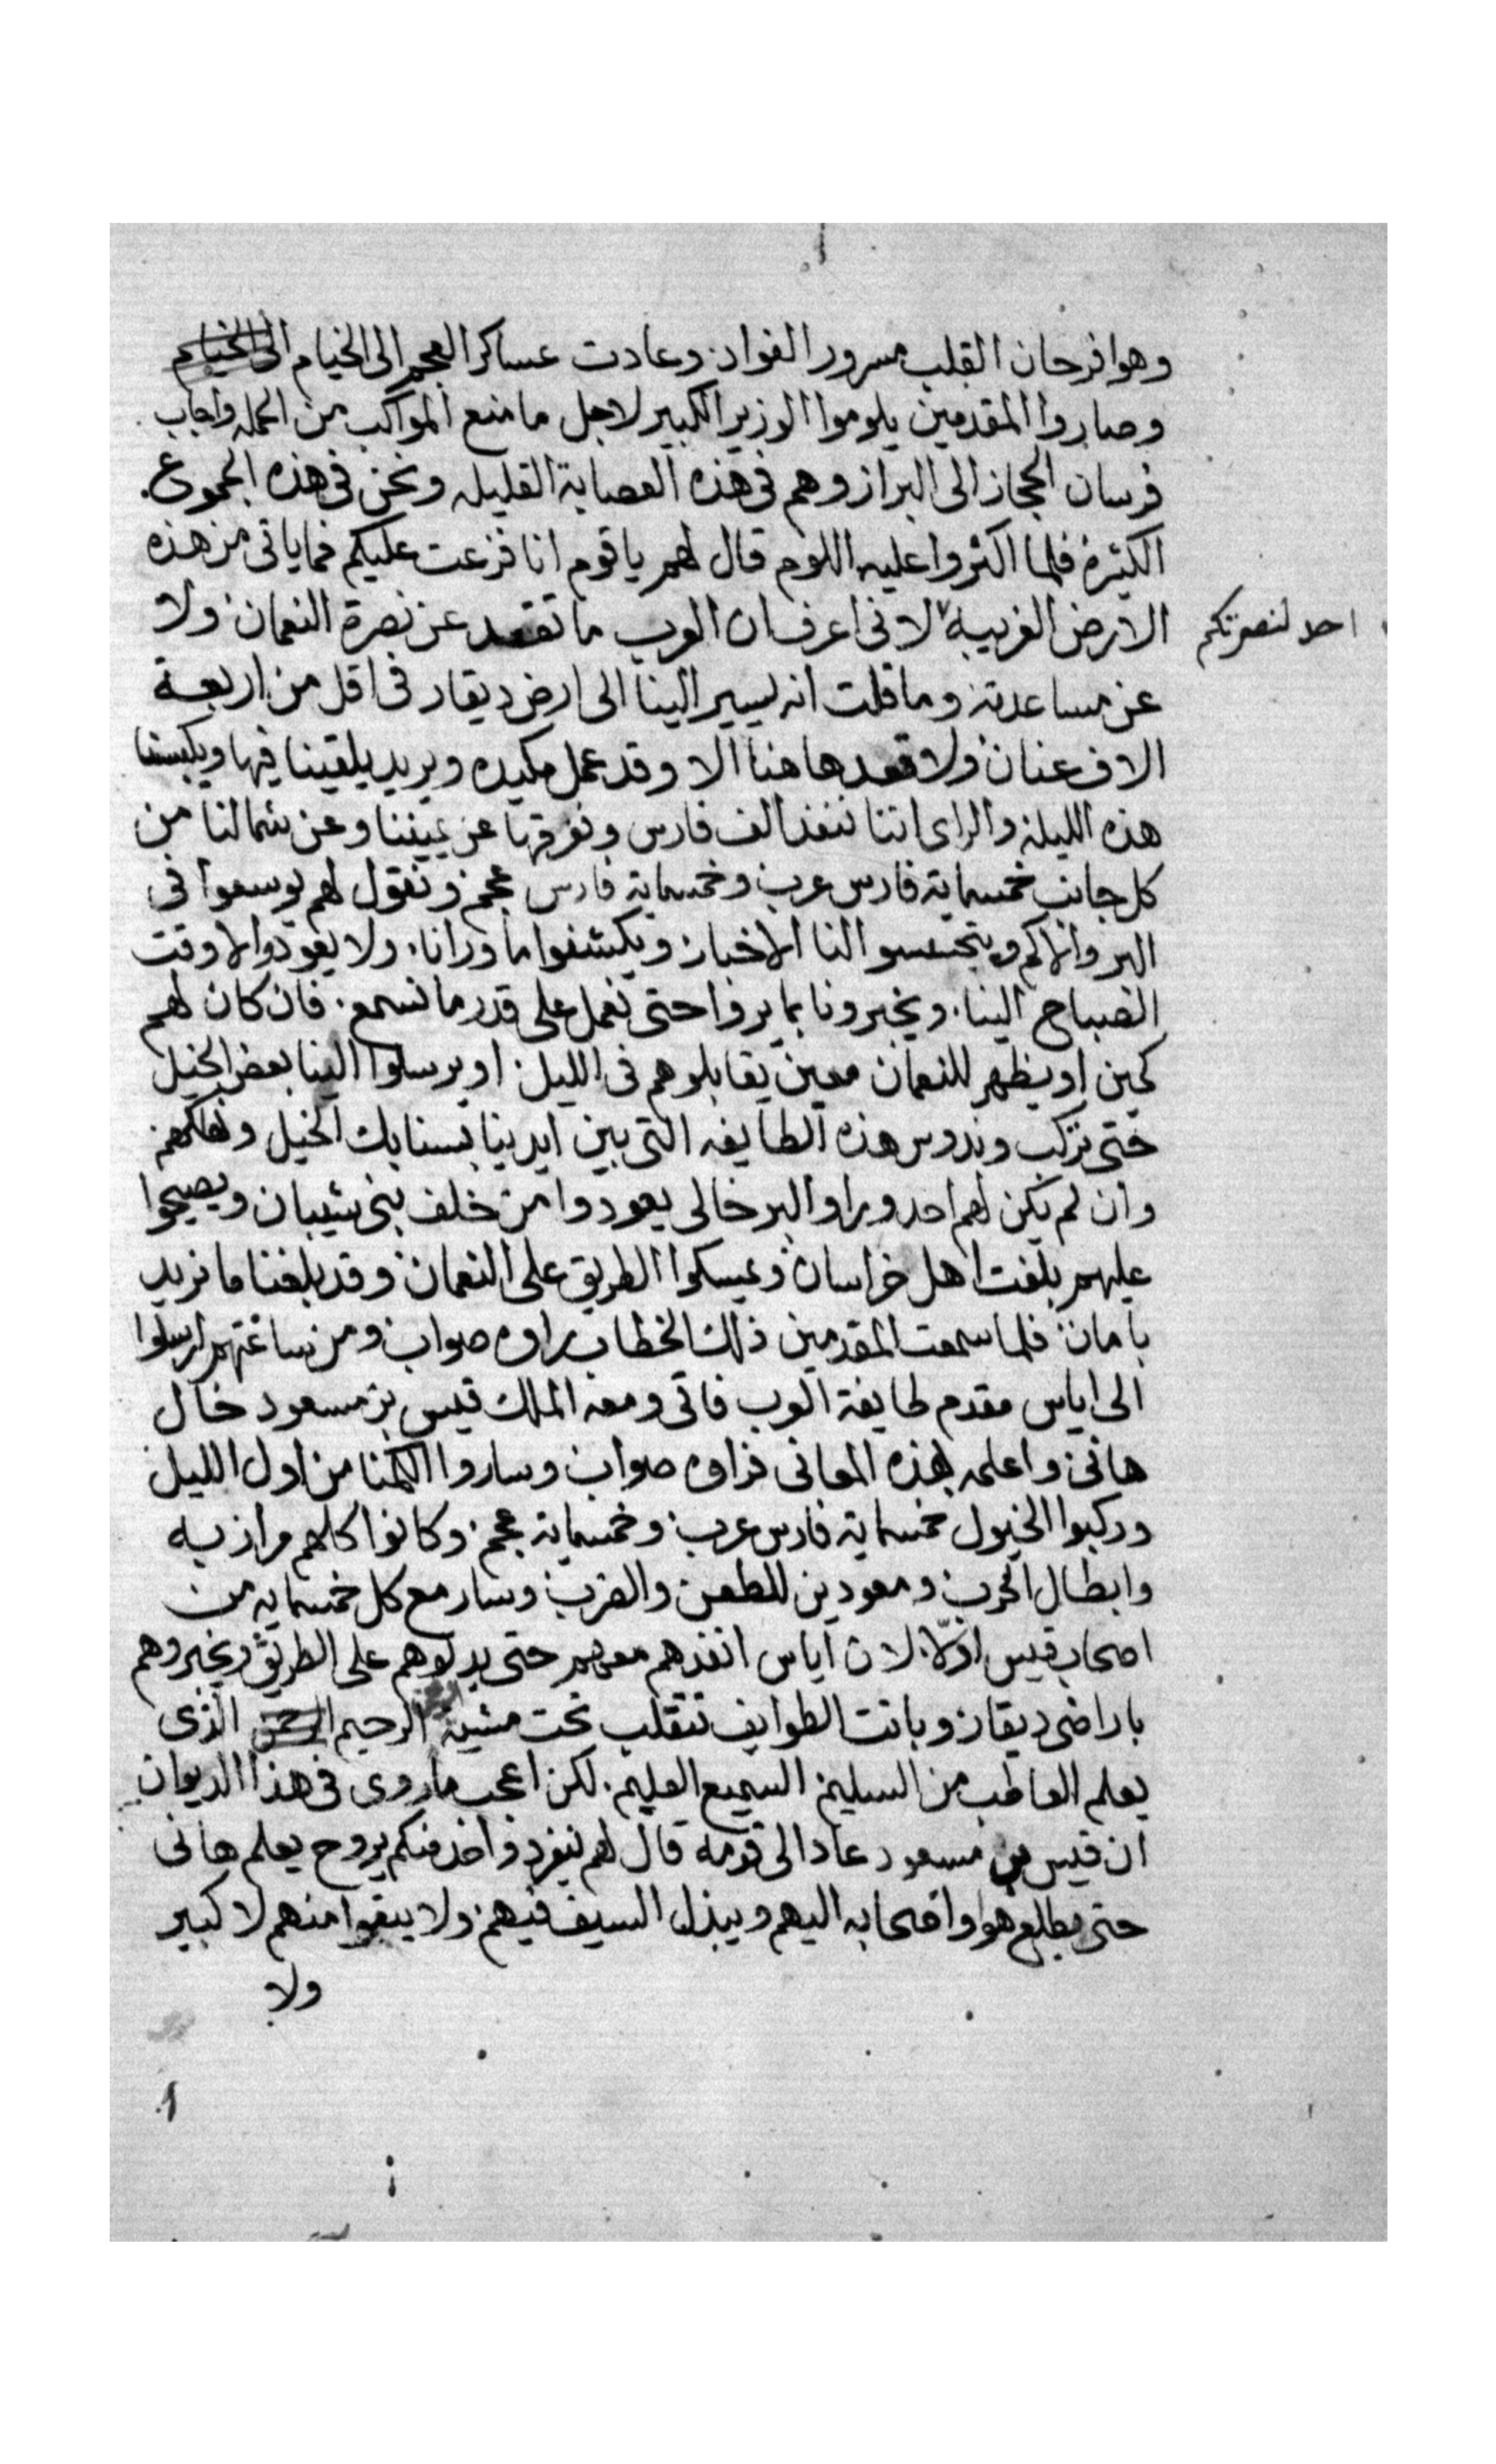 وهوا فرحان القلب مسرور الفواد. وعادت عساكر العجم الى الخيام الى الخيام
وصاروا المقدمين يلوموا الوزير الكبير لاجل ما منع المواكب من الحمله واجاب
فرسان الحجاز الى البراز وهم فى هذه العصابة القليله ونحن فى هذه الجموع.
الكثيرة فلما اكثروا عليه اللوم قال لهم ياقوم انا فزعت عليكم فما ياتى من هذه
الارض الغريبة لانى اعرف ان العرب ما تقعد عن نصرة النعمان. ولا
احد لنصرتكم
عن مساعدته وما قلت انه يسير الينا الى ارض ديقار فى اقل من اربعة
الاف عنان ولا قعد هاهنا الا وقد عمل مكيده ويريد يلقينا فيها ويكبسنا
هذه الليلة والراى اننا ننفذ الف فارس ونفرقها عن يميننا وعن شمالنا من
كل جانب خمسماية فارس عرب وخمسماية فارس عجم ونقول لهم يوسعوا فى
البر والاكم ويتجسسوا لنا الاخبار ويكشفوا ما ورانا. ولا يعودوا الا وقت
الصباح الينا. ويخبرونا بما يروا حتى نعمل على قدر ما نسمع. فان كان لهم
كمين او يظهر للنعمان معين يقابلوهم فى الليل. او يرسلوا الينا بعض الخيل
حتى نركب وندوس هذه الطايفه التى بين ايدينا بسنابك الخيل ونهلكهم
وان لم يكن لهم احد وراوا البر خالى يعودوا من خلف بنى شيبان ويصيحوا
عليهم بلغت اهل خراسان ويمسكوا الطريق على النعمان وقد بلغنا ما نريد
بامان فلما سمعت المقدمين ذلك الخطاب راوه صواب ومن ساعتهم ارسلوا
الى اياس مقدم طايفة العرب فاتى ومعه الملك قيس بن مسعود خال
هانى واعلمه بهذه المعانى فراوه صواب وساروا الكمنا من اول الليل
وركبوا الخيول خمسماية فارس عرب. وخمسماية عجم. وكانوا كلهم مرازبه
وابطال الحرب ومعودين للطعن والضرب وسار مع كل خمسمايه من
اصحاب قيس ادلّا. لان اياس انفذهم معهم حتى يدلوهم على الطريق ويخبروهم
باراضى ديقار وباتت الطوايف تتقلب تحت مشية الرحيم الرحمن الذى
يعلم العاطب من السليم السميع العليم. لكن اعجب ما روى فى هذا الديوان
ان قيس بن مسعود عاد الى قومه قال لهم ينفرد واحد منكم يروح يعلم هانى
حتى يطلع هوا واصحابه اليهم ويبذل السيف فيهم ولا يبقوا منهم لا كبير
ولا